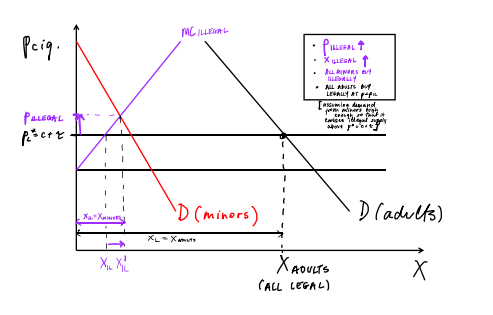 Pcig.
MC ILLEGAL
• P ILLEGAL ↑
• X ILLEGAL ↑
• ALL MINORS BUY
ILLEGALLY
• ALL ADULTS BUY
LEGALLY AT
[assuming demand
from minors high
enough so that it
illegal supply
above p*=c+τ]
P ILLEGAL
P_L*=c+τ
D(minors)
D(adults)
X_IL=X_MINORS
X_L=X_ADULTS
X_IL X_IL'
X_ADULTS
(ALL LEGAL)
X